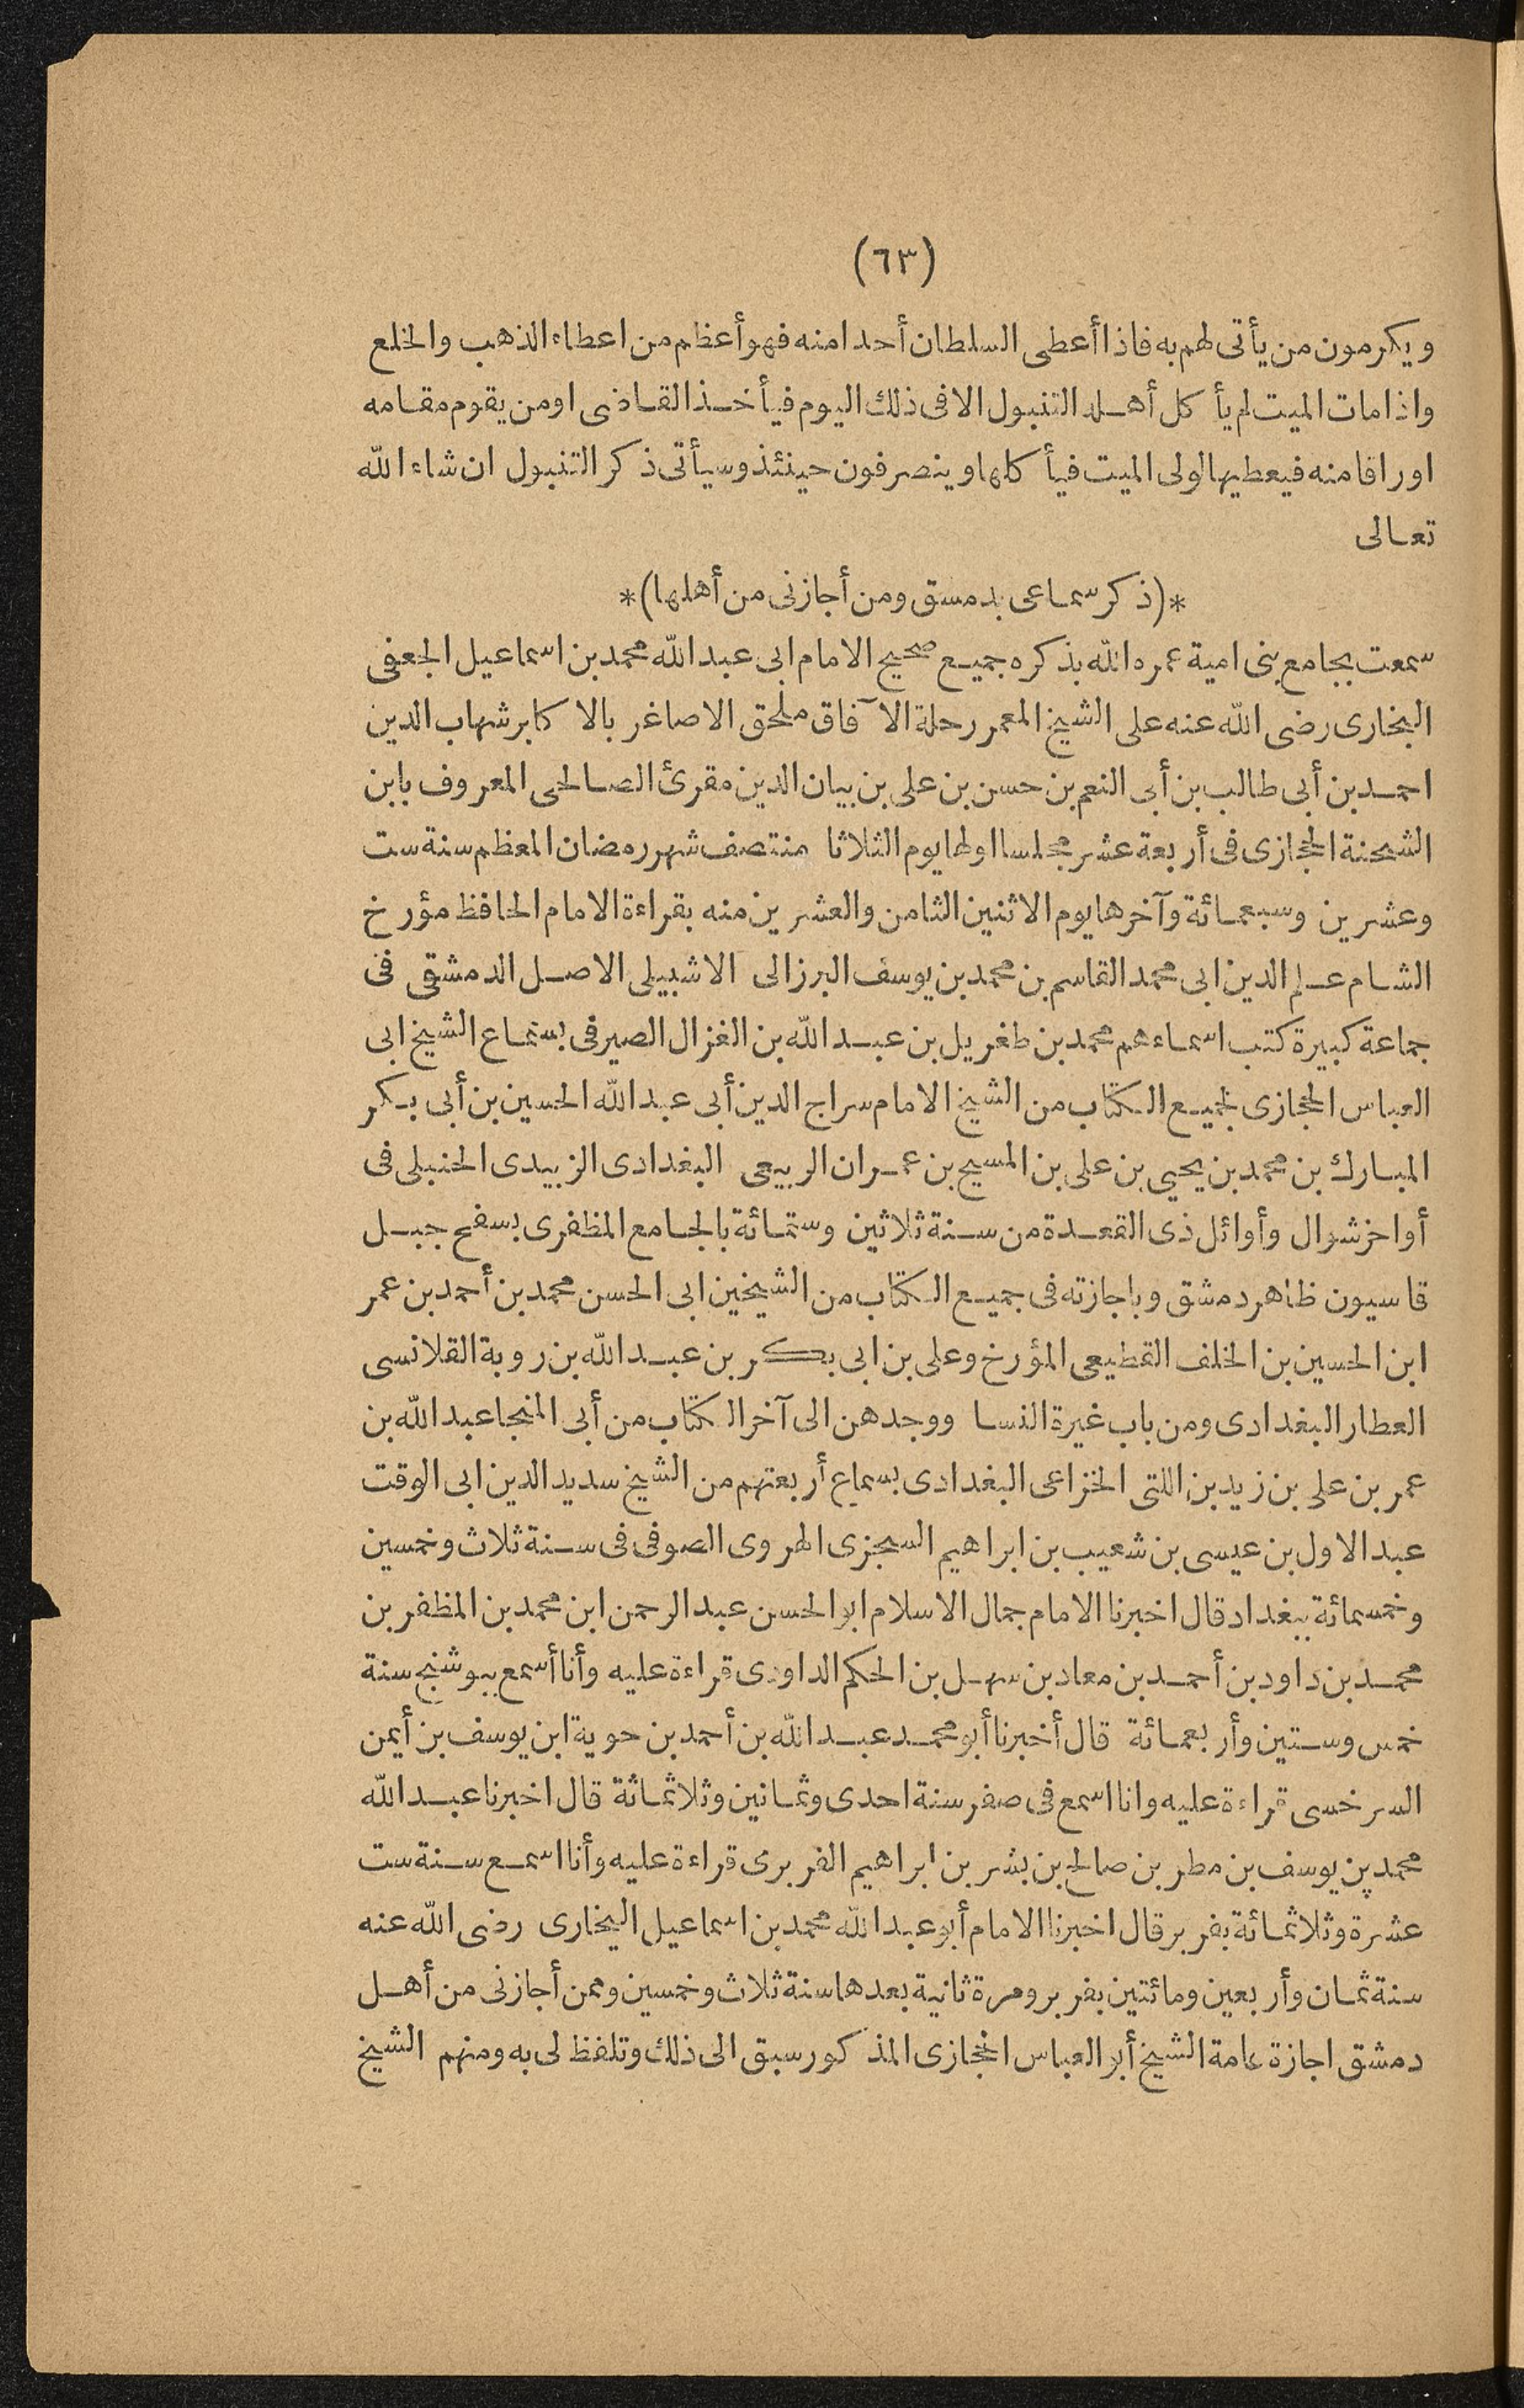 (٦٣)
ويكرمون من يأتى لهم به فاذا أعطى السلطان أحدا منه فهو أعظم من اعطاء الذهب والخلع
واذا مات الميت لم يأكل أهله التنبول الا فى ذلك اليوم فيأخذ القاضى او من يقوم مقامه
اوراقا منه فيعطيها لولى الميت فيأكلها وينصرفون حينئذ وسيأتى ذكر التنبول ان شاء الله
تعالى
*(ذكر سماعى بدمسق ومن أجازنى من أهلها)*
سمعت بجامع بنى امية عمره الله بذكره جميع صحيح الامام ابى عبد الله محمد بن اسماعيل الجعفى
البخارى رضى الله عنه على الشيخ المعمر رحلة الآفاق ملحق الاصاغر بالاكابر شهاب الدين
احمد بن أبى طالب بن أبى النعم بن حسن بن على بن بيان الدين مقرئ الصالحى المعروف بابن
الشحنة الحجازى فى أربعة عشر مجلسا اولها يوم الثلاثا منتصف شهر رمضان المعظم سنة ست
وعشرين وسبعمائة وآخرها يوم الاثنين الثامن والعشرين منه بقراءة الامام الحافظ مؤرخ
الشام علم الدين ابى محمد القاسم بن محمد بن يوسف البرزالى الاشبيلى الاصل الدمشقى فى
جماعة كبيرة كتب اسماءهم محمد بن طغريل بن عبد الله بن الغزال الصيرفى بسماع الشيخ ابى
العباس الحجازى لجميع الكتاب من الشيخ الامام سراج الدين أبى عبد الله الحسين بن أبى بكر
المبارك بن محمد بن يحيى بن على بن المسيح بن عمران الربيعى البغدادى الزبيدى الحنبلى فى
أواخر شوال وأوائل ذى القعدة من سنة ثلاثين وستمائة بالجامع المظفرى بسفح جبل
قاسيون ظاهر دمشق وباجازته فى جميع الكتاب من الشيخين ابى الحسن محمد بن أحمد بن عمر
ابن الحسين بن الخلف القطيعى المؤرخ وعلى بن ابى بكر بن عبد الله بن روبة القلانسى
العطار البغدادى ومن باب غيرة النسا ووجدهن الى آخر الكتاب من أبى المنجا عبد الله بن
عمر بن على بن زيد بن اللتى الخزاعى البغدادى بسماع أربعتهم من الشيخ سديد الدين ابى الوقت
عبد الاول بن عيسى بن شعيب بن ابراهيم السجزى الهروى الصوفى فى سنة ثلاث وخمسين
وخمسمائة ببغداد قال اخبرنا الامام جمال الاسلام ابو الحسن عبد الرحمن ابن محمد بن المظفر بن
محمد بن داود بن أحمد بن معاد بن سهل بن الحكم الداودى قراءة عليه وأنا أسمع ببوشنج سنة
خمس وستين وأربعمائة قال أخبرنا أبو محمد عبد الله بن أحمد بن حوية ابن يوسف بن أيمن
السرخسى قراءة عليه وانا اسمع فى صفر سنة احدى وثمانين وثلاثمائة قال اخبرنا عبد الله
محمد بن يوسف بن مطر بن صالح بن بشر بن ابراهيم الفربرى قراءة عليه وأنا اسمع سنة ست
عشرة وثلاثمائة بفربر قال اخبرنا الامام أبو عبد الله محمد بن اسماعيل البخارى رضى الله عنه
سنة ثمان وأربعين ومائتين بفربر ومرة ثانية بعدها سنة ثلاث وخمسين وممن أجازنى من أهل
دمشق اجازة عامة الشيخ أبو العباس الحجازى المذكور سبق الى ذلك وتلفظ لى به ومنهم الشيخ